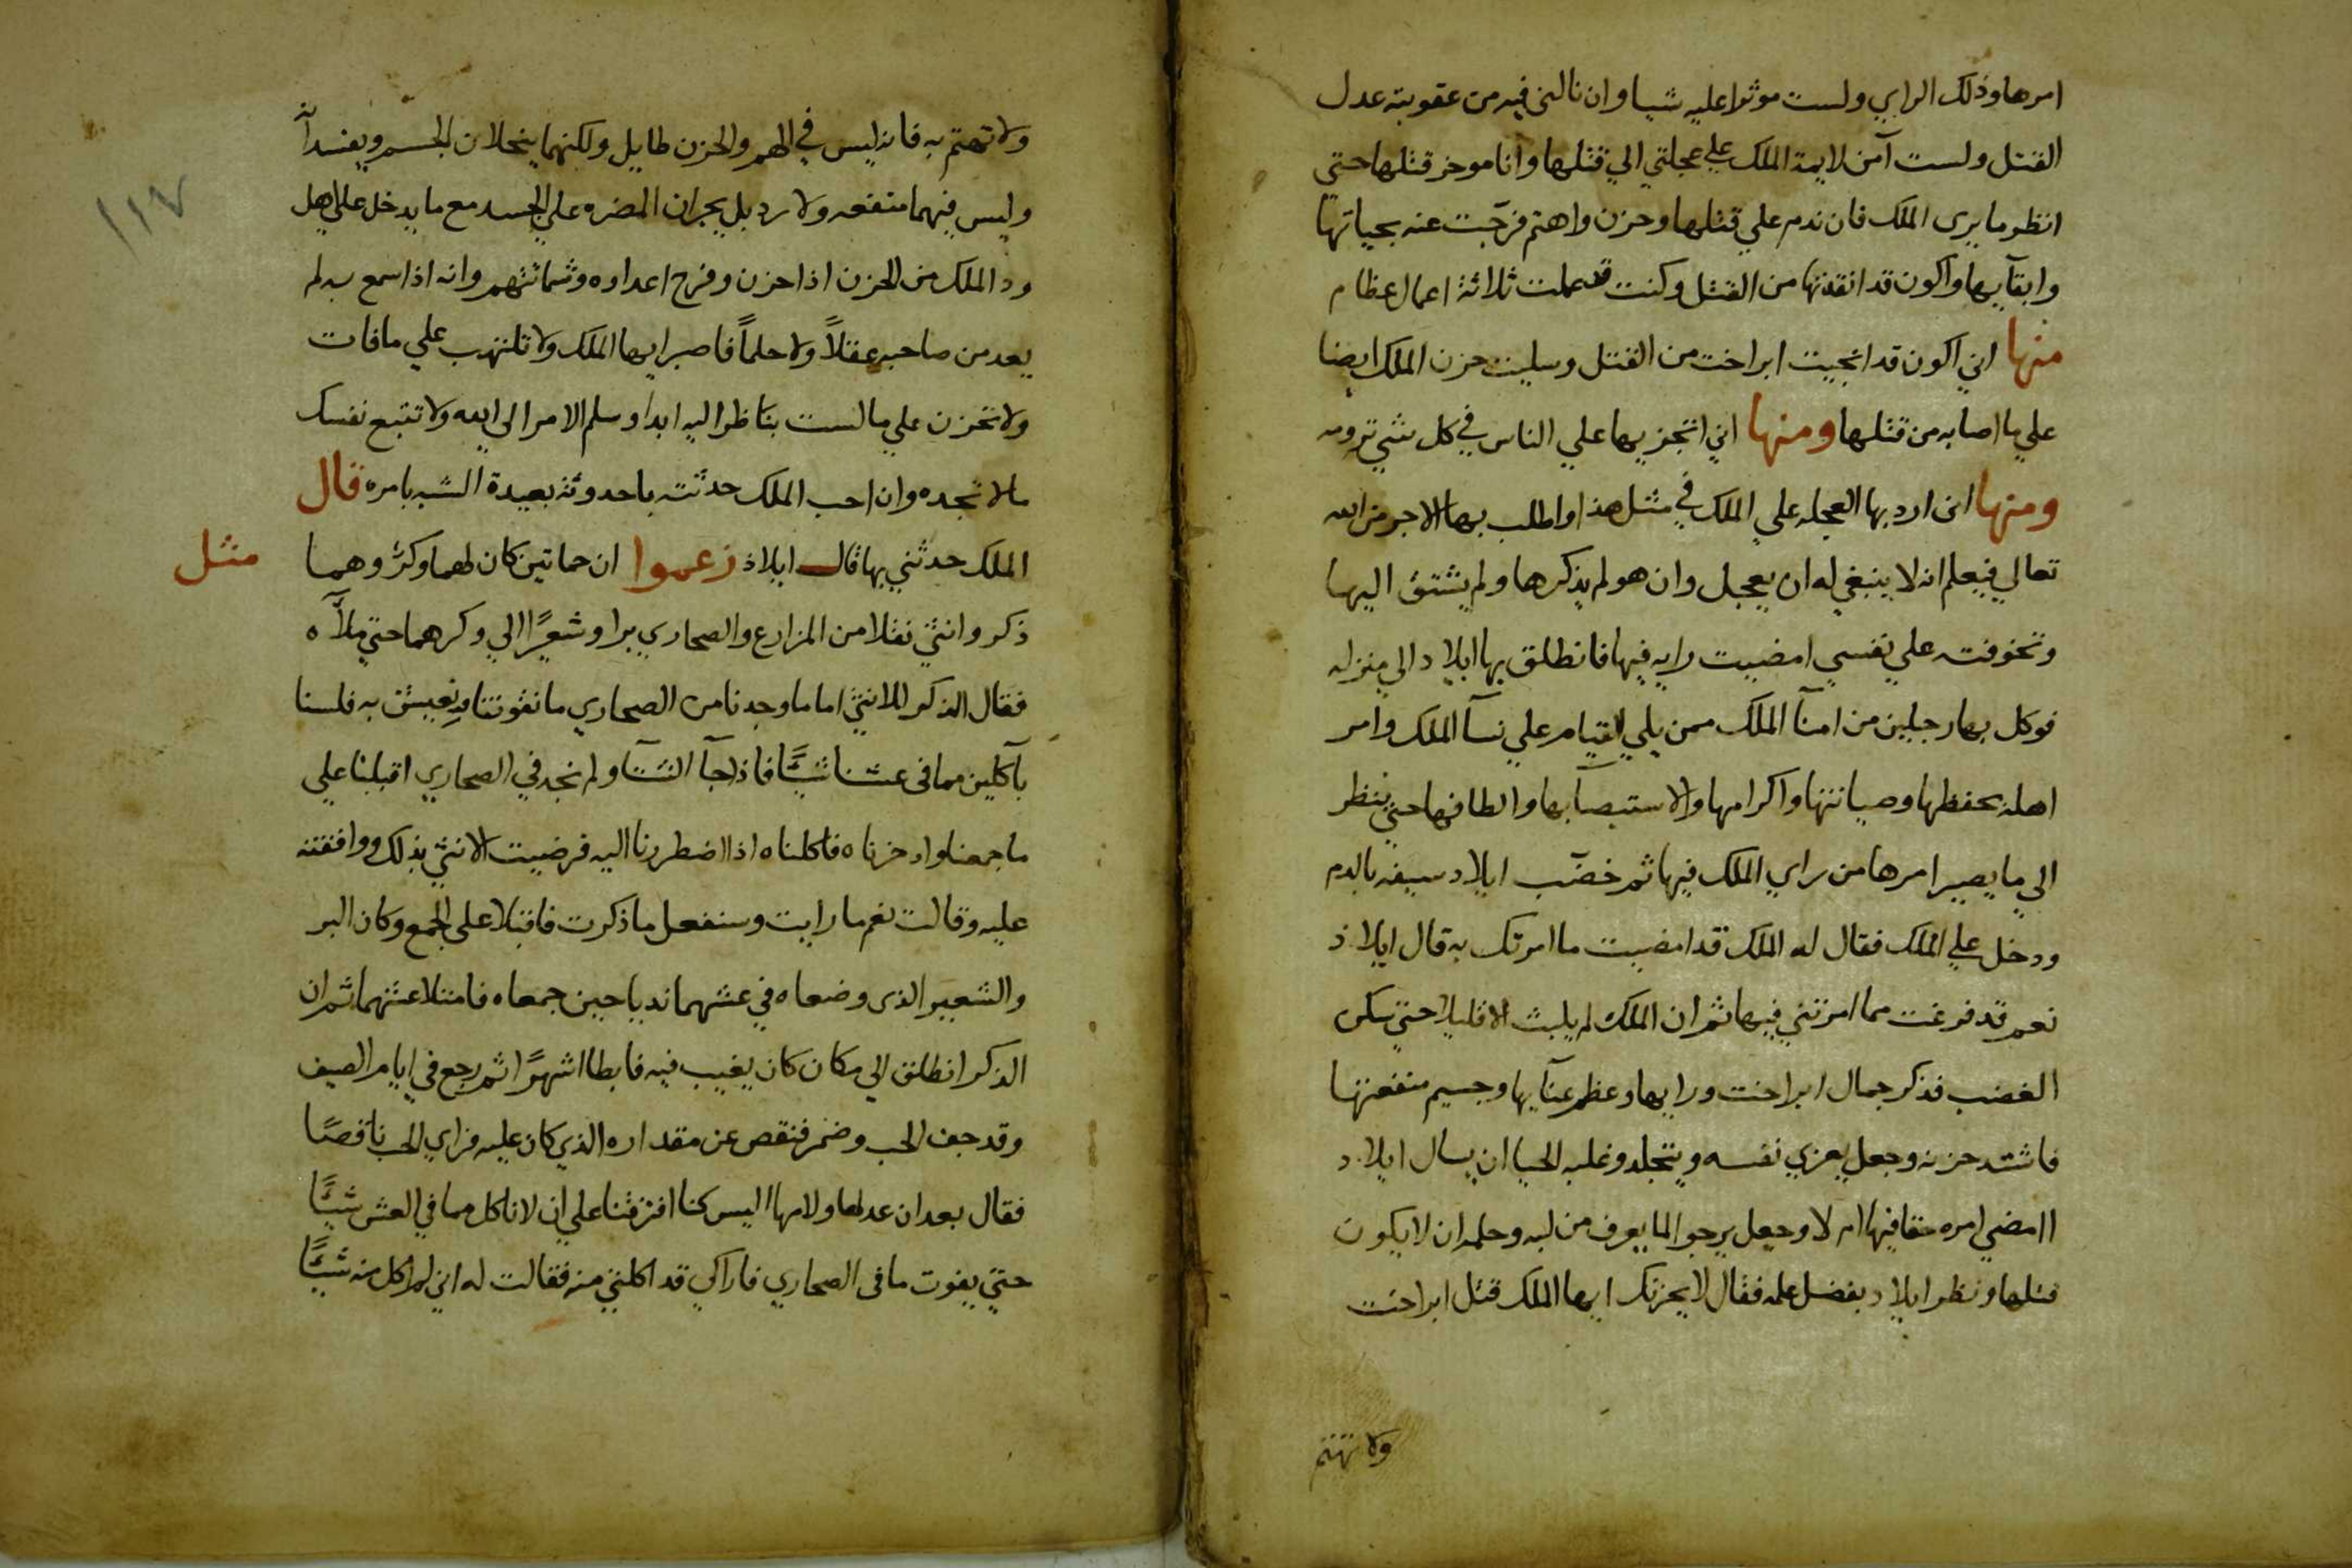 امرها وذلك الراي ولست موثرا عليه شيا وان نالني فيه من عقوبته عدل
القتل ولست آمن لايمة الملك علي عجلتي الي قتلها وانا موخر قتلها حتي
انظر ما يرى الملك فان ندم علي قتلها وحزن واهتم فرجت عنه بحياتها
وابقآيها واكون قد انقذتها من القتل وكنت قد عملت ثلاثة اعمال عظام
منها اني اكون قد انجيت ابراخت من القتل وسليت حزن الملك ايضا
علي ما اصابه من قتلها ومنها اني افتخر بها علي الناس في كل شي ترومه
ومنها اني ارد بها العجله علي الملك في مثل هذا واطلب بها الاجر من الله
تعالي فيعلم انه لا ينبغي له ان يعجل وان هو لم يذكرها ولم يشتق اليها
وتخوفت علي نفسي امضيت رايه فيها فانطلق بها ايلاد الي منزله
فوكل بها رجلين من امنآ الملك ممن يلي القيام علي نسآ الملك وامر
اهله بحفظها وصيانتها واكرامها والاستيصآ بها والطافها حتي ينظر
الي ما يصير امرها من راي الملك فيها ثم خضب ايلاد سيفه بالدم
ودخل علي الملك فقال له الملك قد امضيت ما امرتك به قال ايلاذ
نعم قد فرغت مما امرتني فيها ثم ان الملك لم يلبث الا قليلا حتي سكن
الغضب فذكر جمال ابراخت ورايها وعظم عنآيها وجسيم منفعتها
فاشتد حزنه وجعل يعزي نفسه ويتجلد وغلبه الحيا ان يسال ايلاد
اامضي امره حقا فيها ام لا وجعل يرجو لما يعرف من لبه وحلمه ان لا يكون
قتلها ونظر ايلاد بفضل علمه فقال لا يحزنك ايها الملك قتل ابراخت
ولا تهتم
١١٧
ولا تهتم به فانه ليس في الهم والحزن طايل ولكنهما ينحلان الجسم ويفسدانه
وليس فيهما منفعه ولا رد بل يجران المضره علي الجسد مع ما يدخل علي اهل
ود الملك من الحزن اذا حزن وفرح اعداوه وشماتتهم وانه اذا سمع به لم
يعد من صاحبه عقلاً ولا حلماً فاصبر ايها الملك ولا تلتهب علي ما فات
ولا تحزن علي ما لست بناظر اليه ابدا وسلم الامر الى الله ولا تتبع نفسك
ما لا تجده وان احب الملك حدثته باحدوثة بعيدة الشبه بامره قال
الملك حدثني بها قال ايلاذ زعموا ان حمامتين كان لهما وكرٌ وهما
مثل
ذكر وانثي نقلا من المزارع والصحاري برا وشعيرًا الي وكرهما حتي ملآه
فقال الذكر للانثي اما ما وجدنا من الصحاري ما نقوتنا ونعيش به فلسنا
بآكلين مما في عشنا شيًا فاذا جآ الشتآ ولم نجد في الصحاري اقبلنا علي
ما جمعنا وادخرناه فاكلناه اذا اضطررنا اليه فرضيت الانثي بذلك ووافقته
عليه وقالت نعم ما رايت وسنفعل ما ذكرت فاقبلا على الجمع وكان البر
والشعير الذي وضعاه في عشهما نديا حين جمعاه فامتلا عشهما ثم ان
الذكر انطلق الي مكان كان يغيب فيه فابطا اشهرًا ثم رجع في ايام الصيف
وقد جف الحب وضمر فنقص عن مقداره الذي كان عليه فراي الحب ناقصًا
فقال بعد ان عدلها ولامها اليس كنا افترقنا علي ان لا ناكل مما في العش شيًا
حتي يفوت ما في الصحاري فاراكي قد اكلتي منه فقالت له اني لم اكل منه شيًا